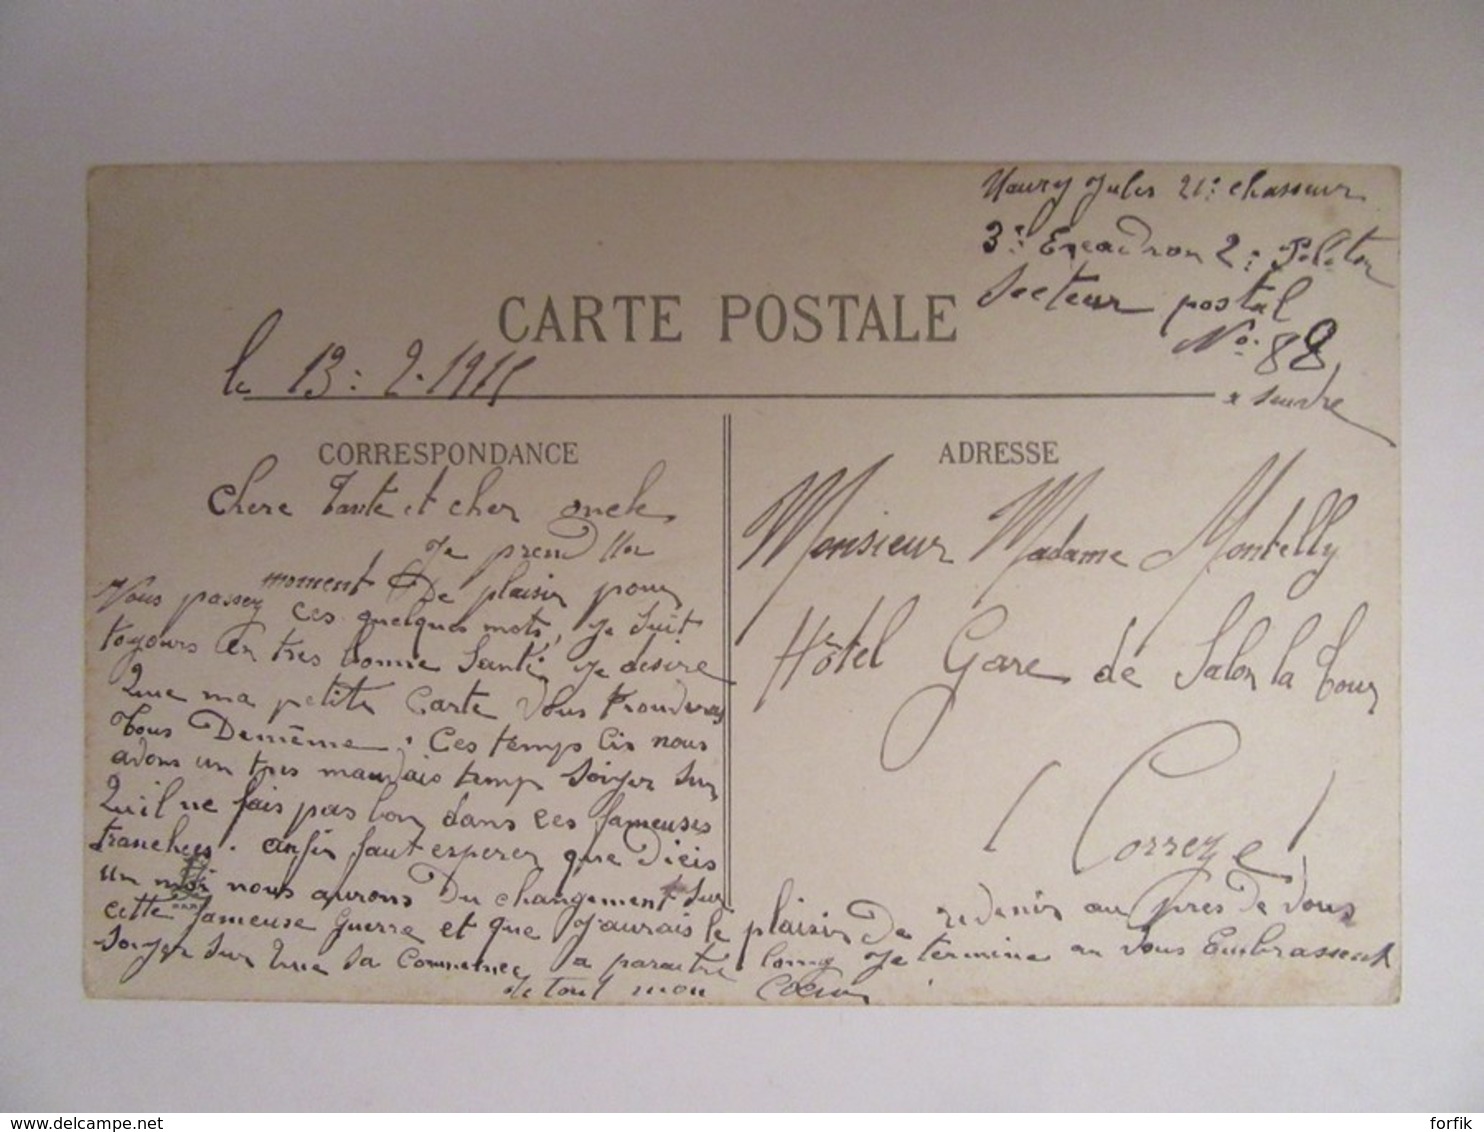 Maury Jules 21e chasseur
3e Escadron 2e Peloton
Secteur postal
No. 88
CARTE POSTALE
le 13-2-1915
CORRESPONDANCE
ADRESSE
Chere Tante et cher oncle
Je prend un
moment De plaisir pour
Vous passez ces quelques mots, je suit
toujours en tres bonne Santé je desire
Que ma petite Carte Vous trouveras
Tous Demême. Ces temps cis nous
avons un tres mauvais temps soiyer sur
Qu'il ne fais pas bon dans ces fameuses
tranchees. anfin faut esperer que Dicis
un moi nous aurons Du changement sur
cette fameuse guerre et que j'aurais le plaisir De revenir au pres De Vous
soiyer sur Que sa commence a paraitre long Je termine en Vous Embrassent
de tout mon Coeur
Monsieur Madame Montelly
Hôtel Gare de Salon la Tour
(Correze)
delcampe.net
forfik